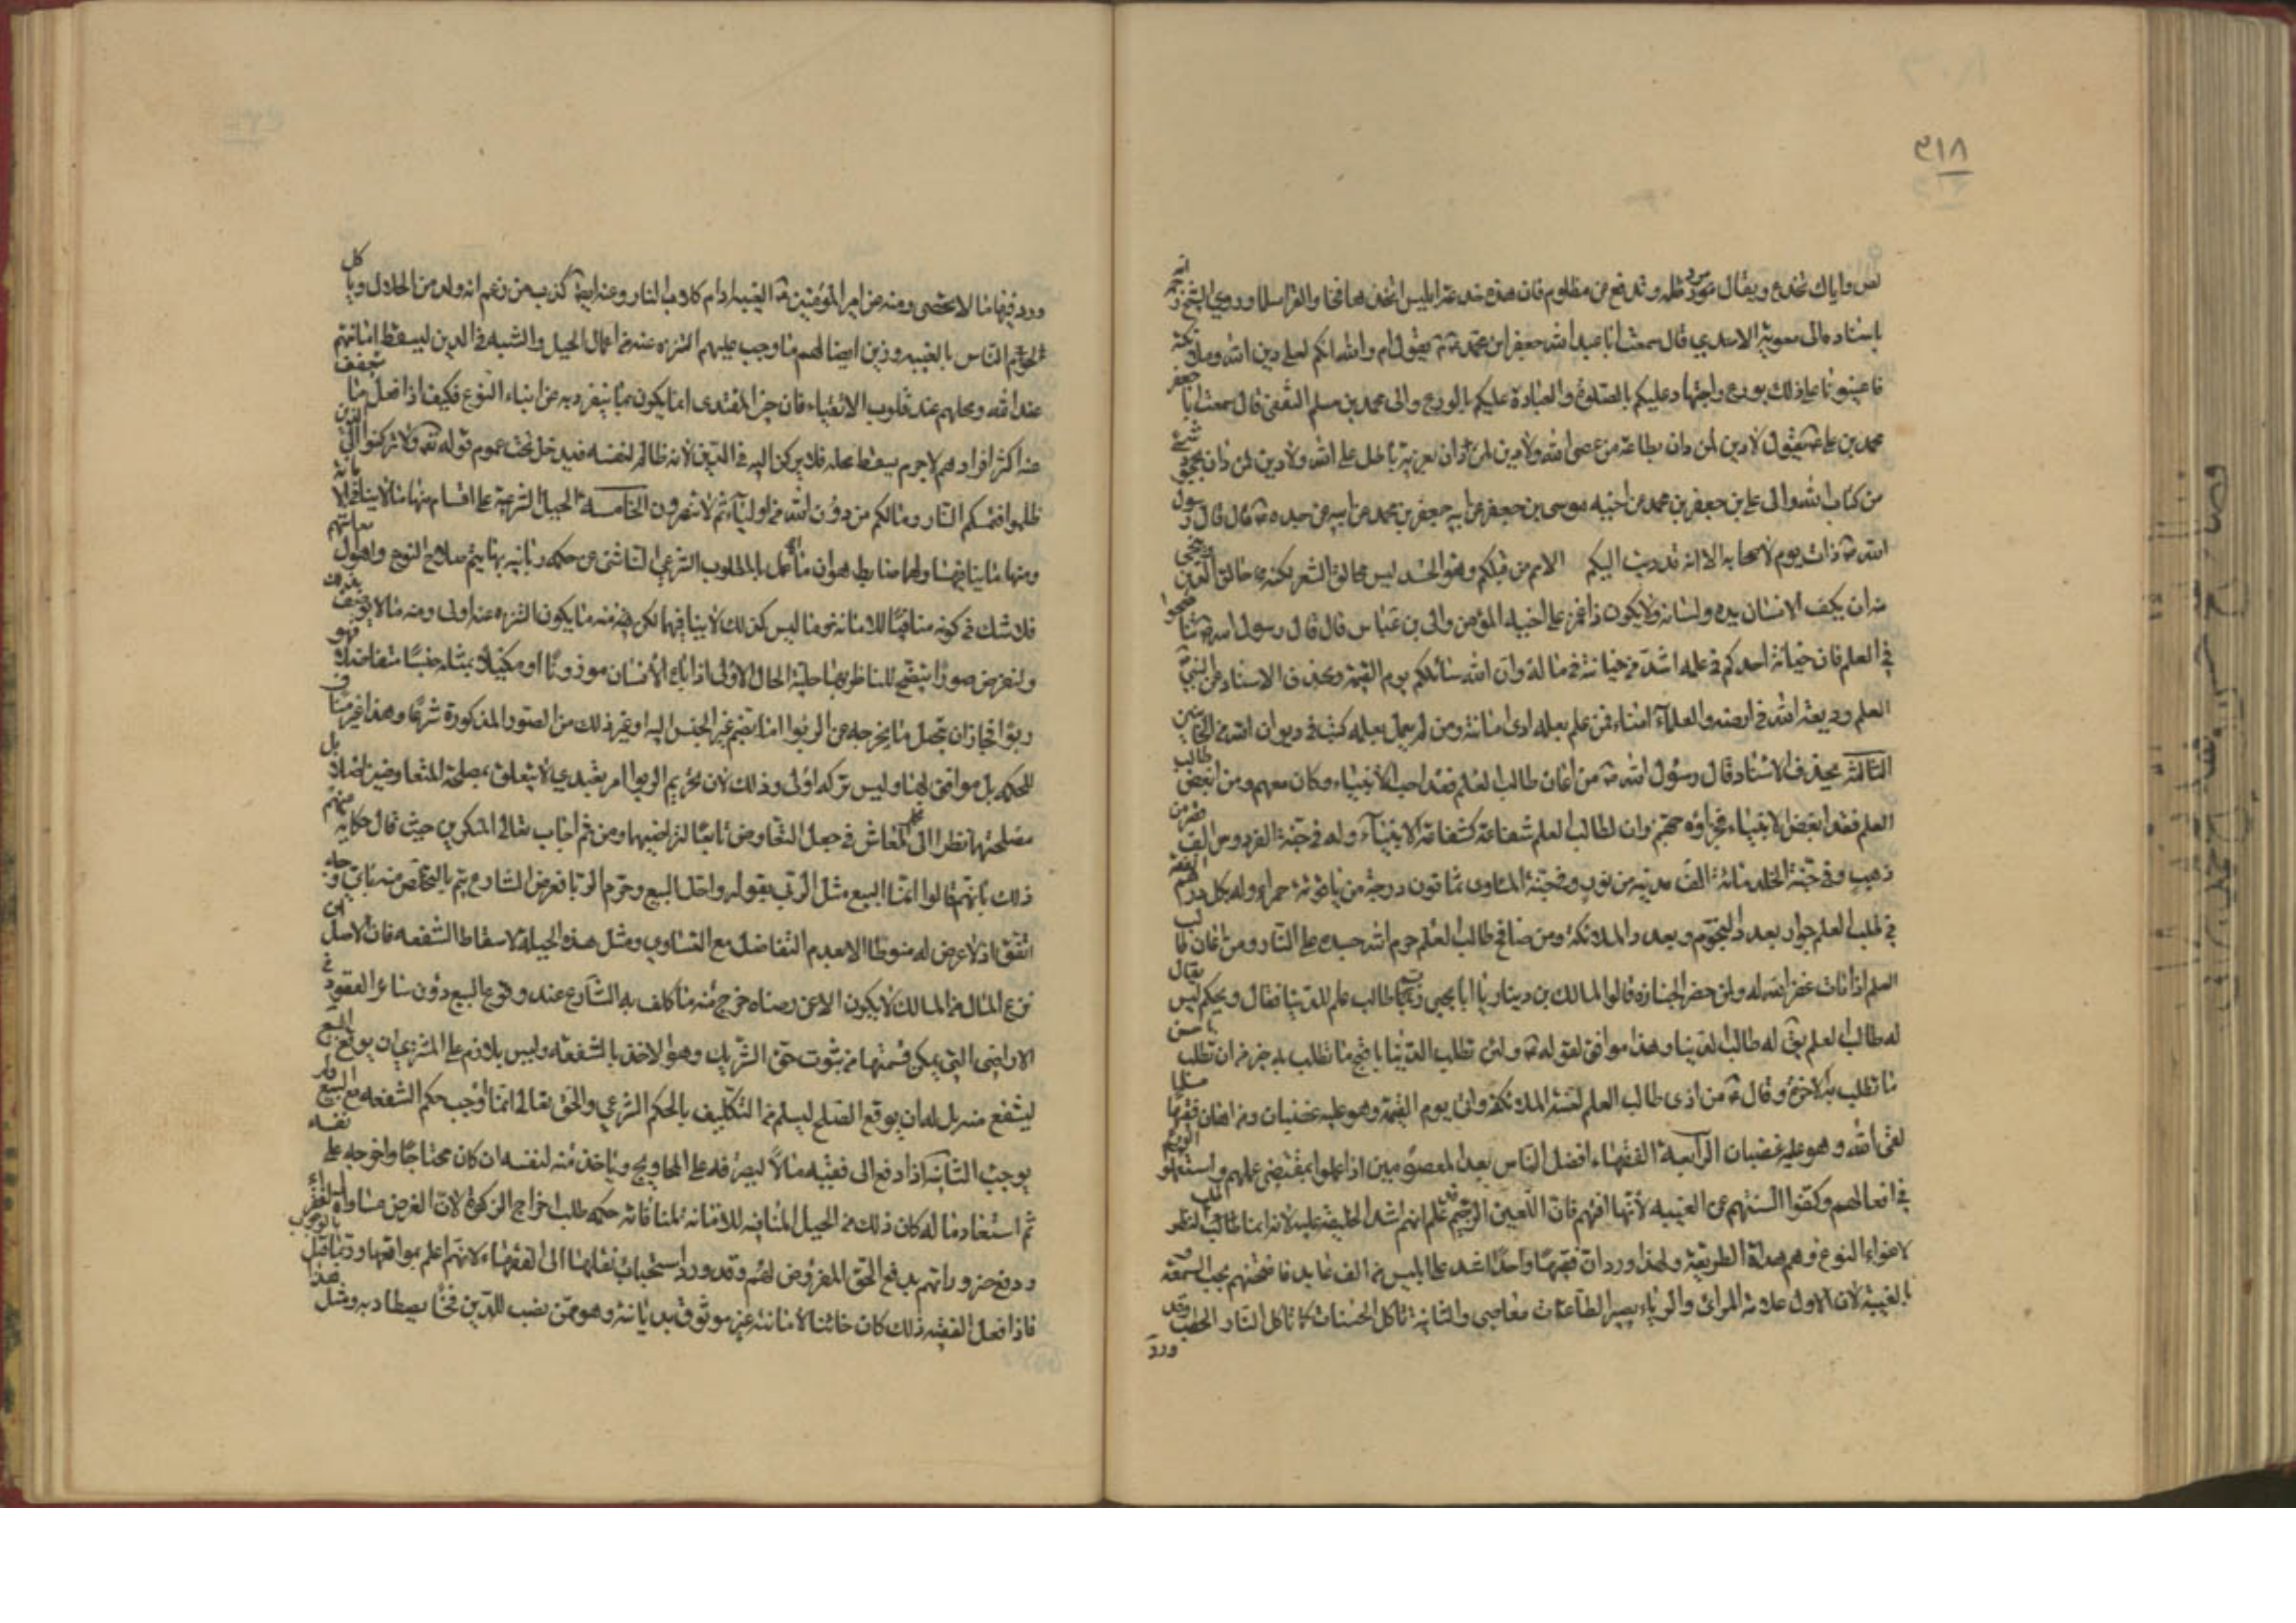 ٣١٨
واياك تخدع ويقال ترد ظلمه وتدفع عن مظلوم فان هذه خدعة ابليس اتخذها فخا والقرا سلما وروي الشيخ ره
باسناده الى الاسدي قال سمعت ابا عبد الله جعفر ابن محمد يقول ام والله انكم لعلى دين الله وملائكته
فاعينونا على ذلك بورع واجتهاد عليكم بالصلوة والعبادة عليكم بالورع والى محمد بن مسلم الثقفي قال سمعت ابا جعفر
محمد بن علي يقول لا دين لمن دان بطاعة من عصى الله ولا دين لمن دان بفرية باطل على الله ولا دين لمن دان بجحود شيء
من كتاب الله والى علي بن جعفر بن محمد عن اخيه موسى بن جعفر عن ابيه جعفر بن محمد عن ابيه عن جده قال قال رسول
الله ذات يوم لاصحابه الا انه قد دب اليكم الامم من قبلكم وهو الحسد ليس بحالق الشعر لكنه حالق الدين
منه ان يكف الانسان يده ولسانه ولا يكون ذا غمز على اخيه المؤمن والى بن عباس قال قال رسول الله تناصحوا
في العلم فان خيانة احدكم في علمه اشد من خيانته في ماله وان الله سائلكم يوم القيمة وبحذف الاسناد عن النبي
العلم وديعة الله في ارضه والعلماء امناء فمن علم بعلمه ادى امانته ومن لم يعمل بعلمه كتب في ديوان الله من الخائنين
الثالثة بحذف الاسناد قال رسول الله من اعان طالب العلم فقد احب الانبياء وكان معهم ومن ابغض طالب
العلم فقد ابغض الانبياء فجزاؤه جهنم وان لطالب العلم شفاعة كشفاعة الانبياء وله في جنة الفردوس الف قصر من
ذهب وفي جنة الخلد مائة الف مدينة من نور وفي جنة الماوى ثمانون درجة من ياقوتة حمراء وله بكل درهم انفقه
في طلب العلم جوار بعدد النجوم وبعدد الملائكة ومن صافح طالب العلم حرم الله جسده على النار ومن اعان طالب
العلم اذا مات غفر الله له ولمن حضر الجنازة قالوا لمالك بن دينار يا ابا يحيى رب طالب علم للدنيا فقال ويحكم ليس يقال
له طالب العلم يق له طالب الدنيا وهذا موافق لقوله ولئن تطلب الدنيا باقبح ما تطلب به خير من ان تطلب باحسن
ما تطلب به الاخرة وقال من اذى طالب العلم لعنته الملائكة واتى يوم القيمة وهو عليه غضبان ومن اهان فقيها مسلما
لقى الله وهو عليه غضبان الرابعة الفقهاء افضل الناس بعد المعصومين اذا عملوا بمقتضى علمهم واستعملوا الورع
في افعالهم وكفوا السنتهم عن الغيبة لانها افتهم فان اللعين الرجيم قد علم انهم اشد الخليقة عليه لانه انما طالب النظر
لاغواء النوع وهم هداة الطريقة ولهذا ورد ان فقيها واحدا اشد على ابليس من الف عابد فامتحنهم بحب السمعة و
بالغيبة لان الاول علامة المرائي والرياء يصير الطاعات معاصي والثانية تاكل الحسنات كما تاكل النار الحطب وقد
ورد
ورد فيها ما لا يحصى ومنه عن امير المؤمنين الغيبة ادام كلاب النار وعنه ايضا كذب من زعم انه ولد من الحلال وياكل
لحوم الناس بالغيبة وزين ايضا لهم ما وجب عليهم التنزه عنه من اعمال الحيل والشبه في الدين ليسقط امانتهم
عند الله ومحلهم عند قلوب الاتقياء فان خير المقتدى انما يكون بما ينفرد به عن ابناء النوع فكيف اذا فعل ما
عنه اكثر افرادهم لا جرم يسقط محله فلا يركن اليه في الدين لانه ظالم لنفسه فيدخل تحت عموم قوله تعه ولا تركنوا الى الذين
ظلموا فتمسكم النار ومالكم من دون الله من اولياء ثم لا تنصرون الخامسة الحيل الشرعية على اقسام منها ما لا ينافي
ومنها ما ينافيها ولها ضابط هو ان ما اخل بالمطلوب الشرعي الناشئ عن حكمة ربانية بها يتم صلاح النوع واهول معاشهم
فلا شك في كونه منافيا للامانة نحو ما ليس كذلك لا ينافيها لكن منه ما يكون التنزه عنه اولى ومنه ما لا يوصف بذلك
ولنعرض صورا يتضح للناظر بها حلية الحال الاولى اذا باع الانسان موزونا او مكيلا بمثله جنسا متفاضلا فهو
ربوا فجاز ان يحصل ما يخرجه عن الربوا اما بضم غير الجنس اليه او غير ذلك من الصور المذكورة شرعا وهذا غير مناف
للحكمة بل موافق لها وليس تركه اولى وذلك لان تحريم الربوا امر تعبدي لا يتعلق بمصلحة المتعاوضين اصلا بل
مصلحتها نظرا الى المعاش في جعل التعاوض تابعا لتراضيهما ومن ثم اجاب تعالى المنكرين حيث قال حكاية عنهم
ذلك بانهم قالوا انما البيع مثل الربى بقوله واحل البيع وحرم الربا فغرض الشارع يتم بالتخلص منه باي وجه
اتفق اذ لا غرض له منوطا الا بعدم التفاضل مع التساوي ومثل هذه الحيلة لاسقاط الشفعة فان الاصل
نزع المال من المالك لا يكون الا عن رضاه خرج منه ما كلف به الشارع عند وقوع البيع دون سائر العقود في
الاراضي التي يمكن قسمتها من ثبوت حق الشريك وهو الاخذ بالشفعة وليس بلازم على المشتري ان يوقع البيع
ليشفع منه بل له ان يوقع الصلح ليسلم من التكليف بالحكم الشرعي والحق تعالى انما اوجب حكم الشفعة مع البيع ولم
يوجب الثانية اذا دفع الى فقيه مالا ليصرفه على المحاويج وياخذ منه لنفسه ان كان محتاجا واخرجه على نفسه
ثم استعاد ماله كان ذلك من الحيل المنافية للامانة لمنافاته حكمة طلب اخراج الزكوة لان الغرض مساواة الفقراء
ودفع ضروراتهم بدفع الحق المفروض لهم وقد ورد استحباب نقلها الى الفقهاء لانهم اعلم بمواقعها وربما قيل بالوجوب
فاذا فعل الفقيه ذلك كان خائنا لامانته غير موثوق بديانته وهو ممن نصب للدين فخا يصطاد به ومثل هذا